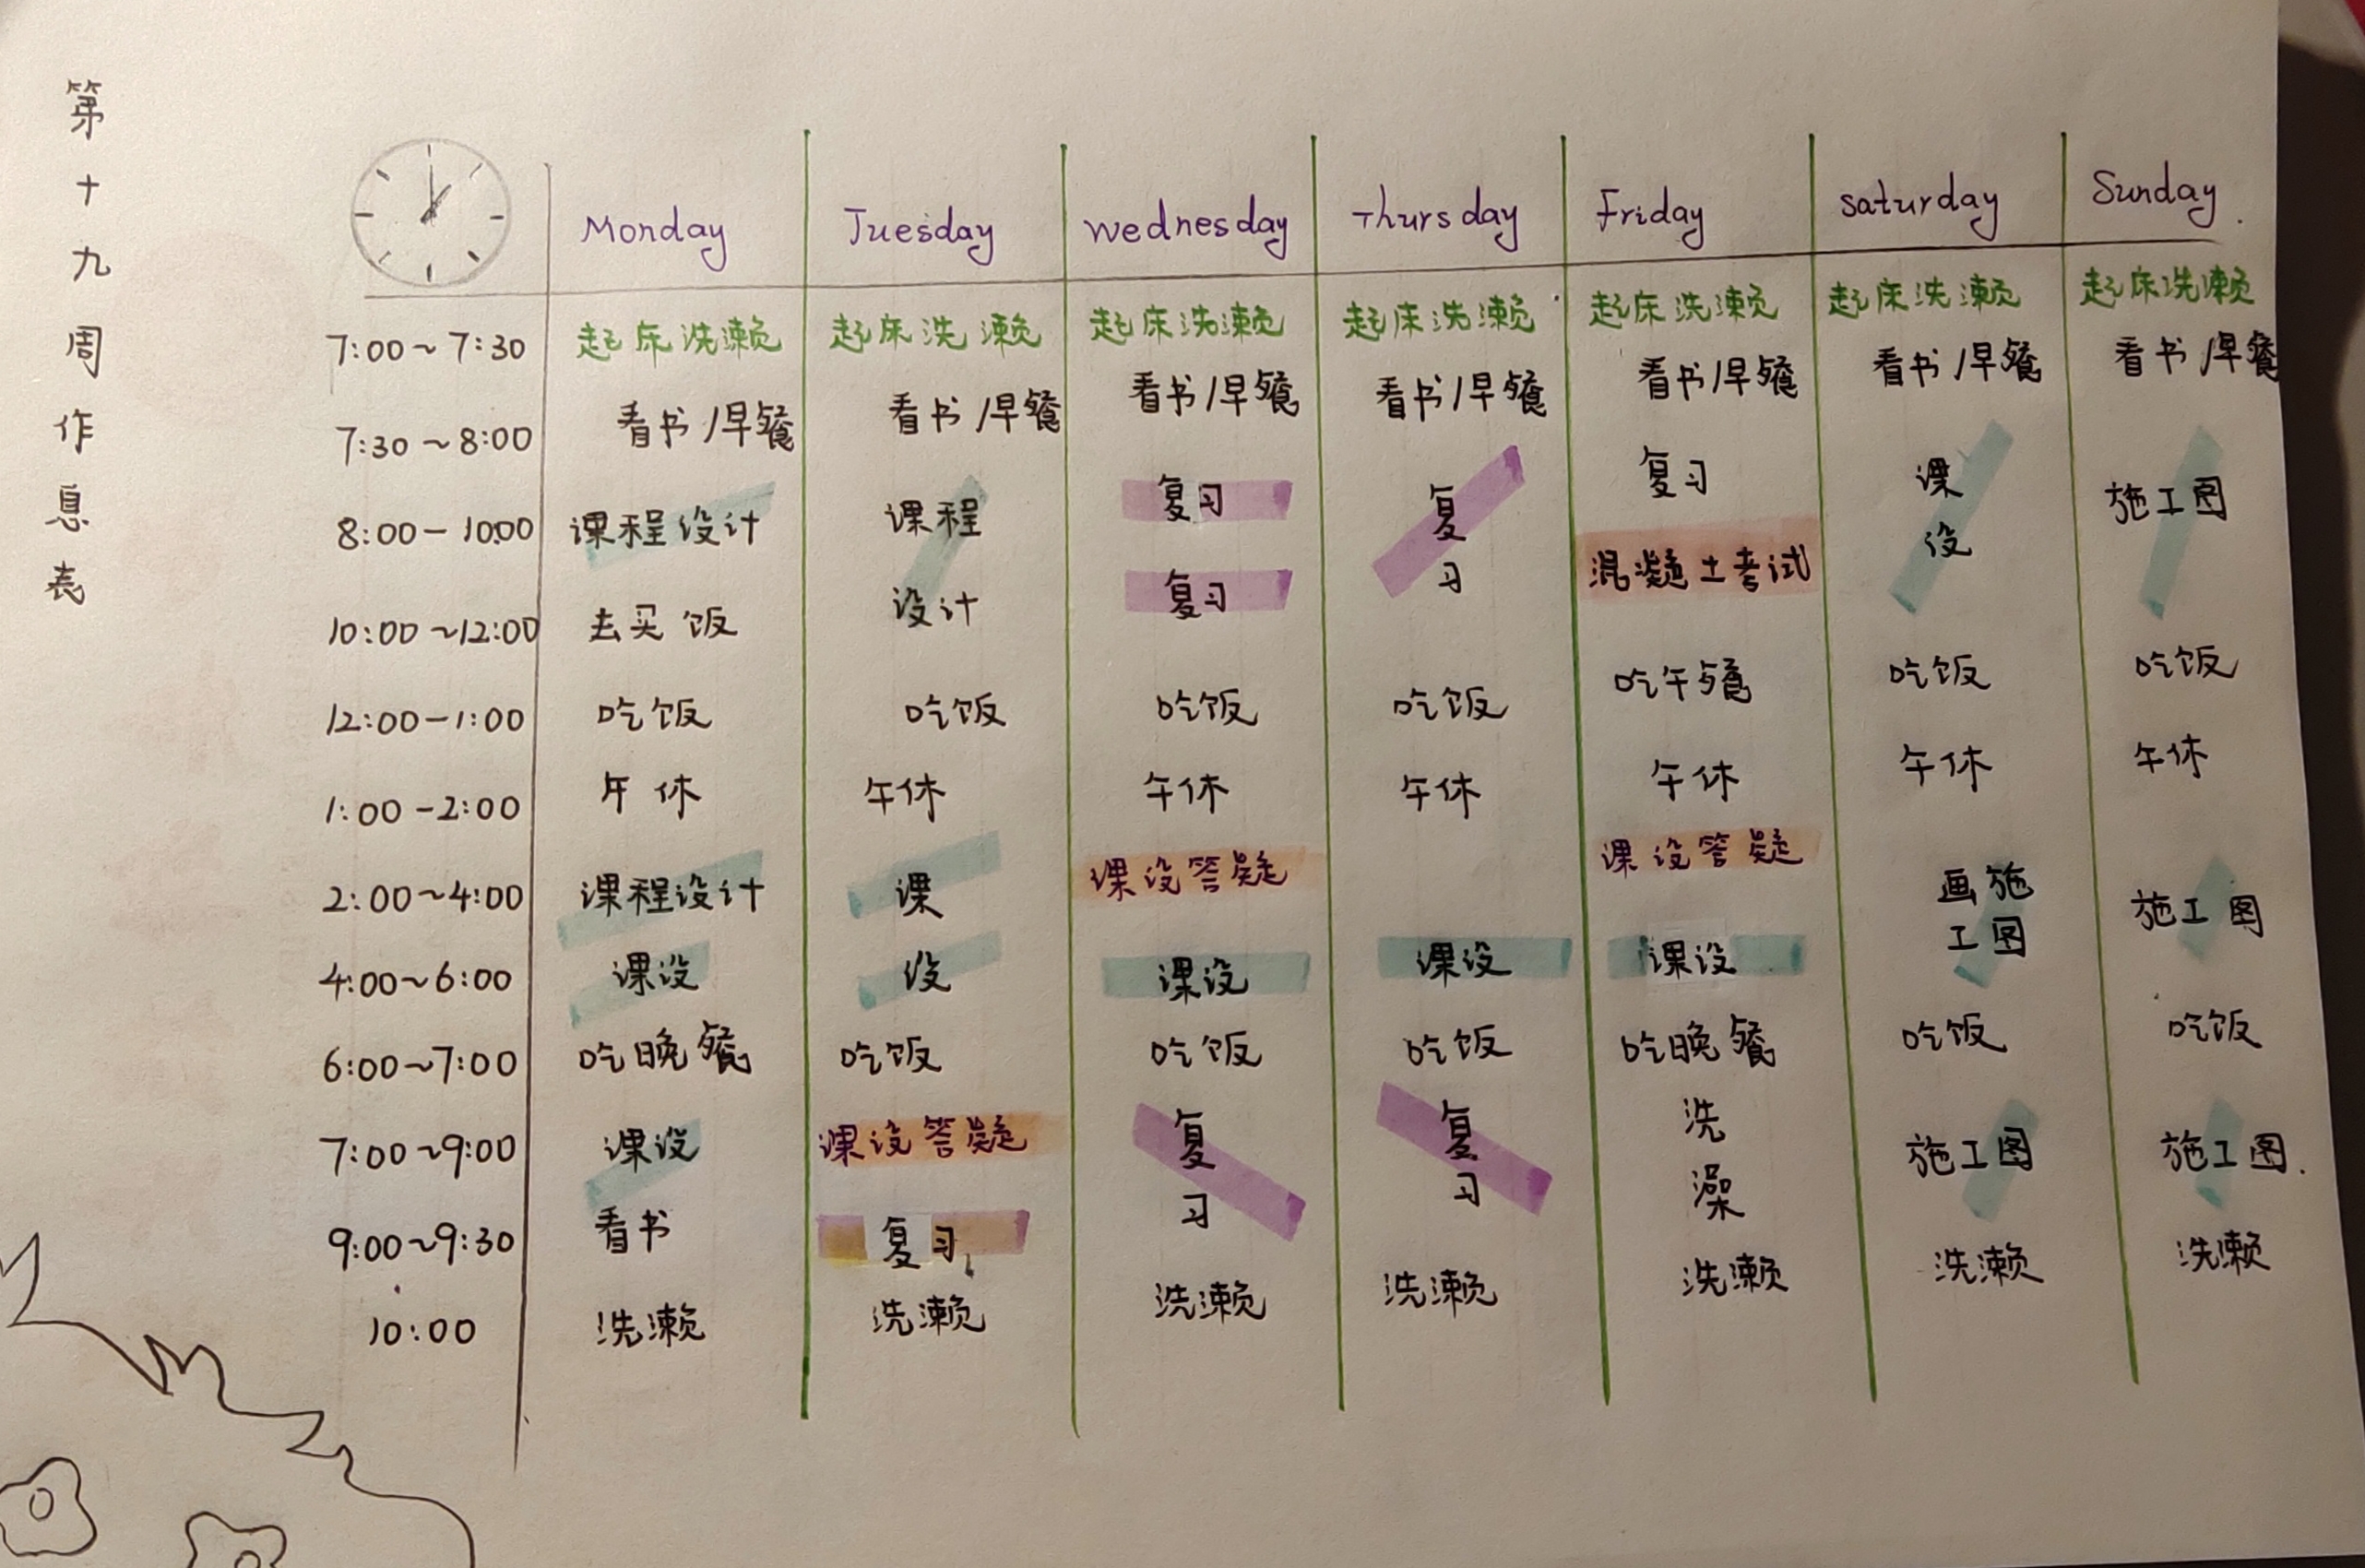 第十九周作息表
Monday Tuesday wednesday Thursday Friday saturday Sunday.
7:00~7:30 起床洗濑 起床洗濑 起床洗濑 起床洗濑 起床洗濑 起床洗濑 起床洗濑
7:30~8:00 看书/早餐 看书/早餐 看书/早餐 看书/早餐 看书/早餐 看书/早餐 看书/早餐
8:00-10:00 课程设计 课程 复习 复 复习 课 施工图
10:00~12:00 去买饭 设计 复习 习 混凝土考试 设
12:00-1:00 吃饭 吃饭 吃饭 吃饭 吃午餐 吃饭 吃饭
1:00-2:00 午休 午休 午休 午休 午休 午休 午休
2:00~4:00 课程设计 课 课设答疑 课设答疑 画施 施工图
4:00~6:00 课设 设 课设 课设 课设 工图
6:00~7:00 吃晚餐 吃饭 吃饭 吃饭 吃晚餐 吃饭 吃饭
7:00~9:00 课设 课设答疑 复 复 洗 施工图 施工图.
9:00~9:30 看书 复习 习 习 澡
10:00 洗濑 洗濑 洗濑 洗濑 洗濑 洗濑 洗濑